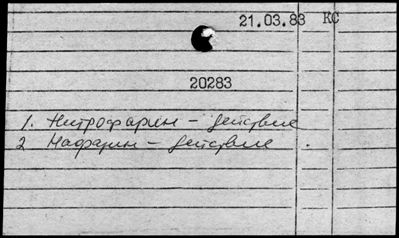 21.03.83 КС
20283
1. Нитрофарин – действие
2 Нафарин – действие.